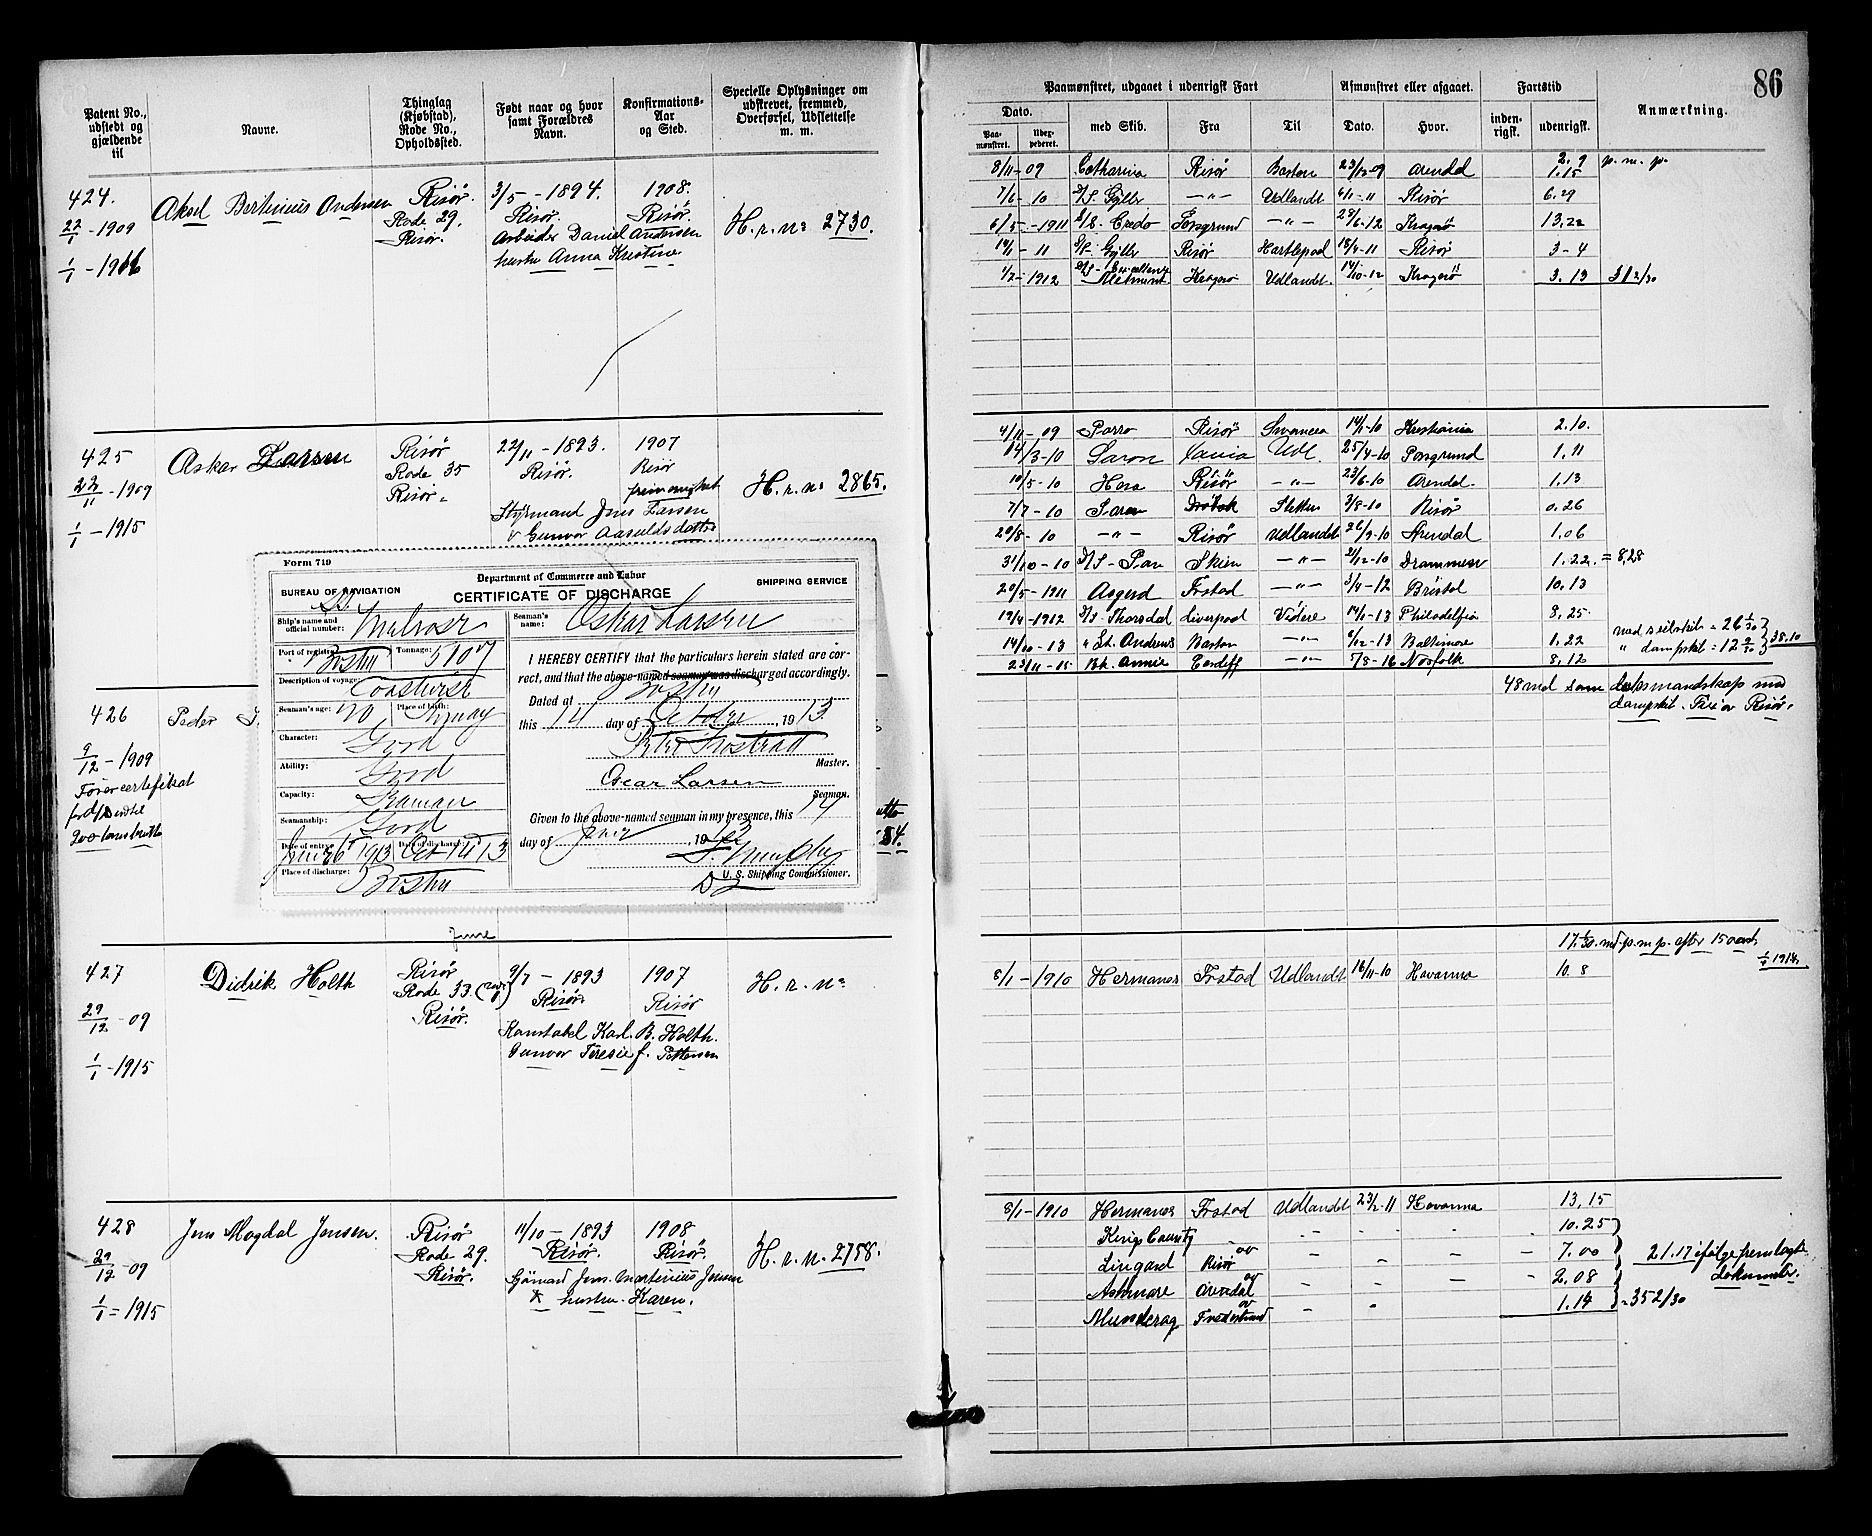 86
Patent No., udstedt og gjældende til
Navne.
Thinglag (Kjøbstad), Rode No., Opholdssted.
Født naar og hvor samt Forældres Navn.
Konfirmations- Aar og Sted.
Specielle Oplysninger om udskrevet, fremmed, Overførsel, Udslettelse m. m.
Paamønstret, udgaaet i udenrigsk Fart
Afmønstret eller afgaaet.
Fartstid
Anmærkning.
Dato.
Paa- mønstret.
med Skib.
Fra
Til
Dato.
Hvor.
inden- rigsk.
udenrigsk.
424.
22/1 - 1909
1/1 - 1916
Aksel Bertinius Andersen
Risør.
Rode 29.
Risør.
3/5 - 1894.
Risør.
Arbeider Daniel Andersen
hustru Anna Kristine
1908.
Risør.
H. r. No 2730.
8/11-09 Catharina Risør Boston 23/12-09 Arendal 2.9 p. m. p.
1.15
7/6 - 10 D/S. Gyller -"- Udlandt 4/1-11 Risør 6.29
6/5 - 1911 S/S. Credo Porsgrund -"- 29/6-12 Kragerø 13.22
19/1 - 11 Gyller Risør Hartlepool 18/4-11 Risør 3-4
1/7-1912 Kragerø Udlandt. 14/10-12 Kragerø 3.13 312/30
425
22/11 - 1909
1/1 - 1915
Askar Larsen
Risør
Rode 35
Risør.
22/11 - 1893.
Risør.
Styrmand Jens Larsen
Gunvor Aasuldsdatter
1907
Risør
frimenighet
H. r. No 2865.
4/11 - 09 Parro Risør Swansea 14/1-10 Kristiania 2.10.
14/3-10 Saron Udl. 25/4-10 Porsgrund 1.11
10/5-10 Hera Risør -"- 23/6-10 Arendal. 1.13
7/7 - 10 Saron Drøbak Stettin 3/8-10 Risør 0.26
20/8 - 10 -"- Risør Udlandet 26/9-10 Arendal 1.06
31/10 - 10 D/S - Pan Skien -"- 21/12-10 Drammen 1.22. = 8,28
20/5 - 1911 Asgerd Frstad -"- 3/4-12 Bristol 10.13
19/4-1912 D/S Thorsdal Liverpool Videre 14/1-13 Philadelfia 8.25.
14/10 - 13 " St. Andrews Boston -"- 6/12-13 Baltimore 1.22
23/11 - 15 Bk. Annie Cardiff -"- 7/8-16 Norfolk 8.12
med seilskib = 26
" dampskib = 12
38.10
48 md som dæksmandskap med
dampskib.
Form 719
Department of Commerce and Labor
BUREAU OF NAVIGATION
SHIPPING SERVICE
CERTIFICATE OF DISCHARGE
Ship's name and official number: Melrose
Seaman's name: Oskar Larsen
Port of registry: Boston
Tonnage: 5107
Description of voyage: Coastwise
Seaman's age: 20
Place of birth: Norway
Character: Good
Ability: Good
Capacity: Seaman
Seamanship: Good
Date of entry: June 26 1913
Date of discharge: Oct 14 13
Place of discharge: Boston
I HEREBY CERTIFY that the particulars herein stated are cor-
rect, and that the above-named seaman was discharged accordingly.
Dated at Boston
this 14 day of October, 1913.
Master.
Oscar Larsen
Seaman.
Given to the above-named seaman in my presence, this 14
day of , 19
U. S. Shipping Commissioner.
June
426
9/12 - 1909
Førercertifikat
Peder
427
29/12 - 09
1/1 - 1915
Didrik Holth
Risør
Rode 33.
Risør.
9/7 - 1893
Risør.
Konstabel Karl. B. Holth.
Gunvor Teresie f. Pettersen
1907
Risør
H. r. No
17 1/30 md. p. m. p. efter 15 aar
1/1 1914.
8/1 - 1910 Hermanos Frstad Udlandt 18/11-10 Havanna 10. 8
428
29/12 - 09
1/1 = 1915
Jens Magdal Jensen.
Risør
Rode 29.
Risør.
11/10 - 1893
Risør.
Sjömand Jens. Martinius Jensen
hustru. Karen.
1908
Risør.
H. r. No. 2758.
8/1 - 1910 Hermanos Frstad Udlandet 23/2-11 Havanna 13,15
King County 10.25
Lingard av Risør 7.00
av Arendal 2.08
av Fredrikstad 1.14
21.17 ifølge fremlagte
dokumenter.
= 352/30